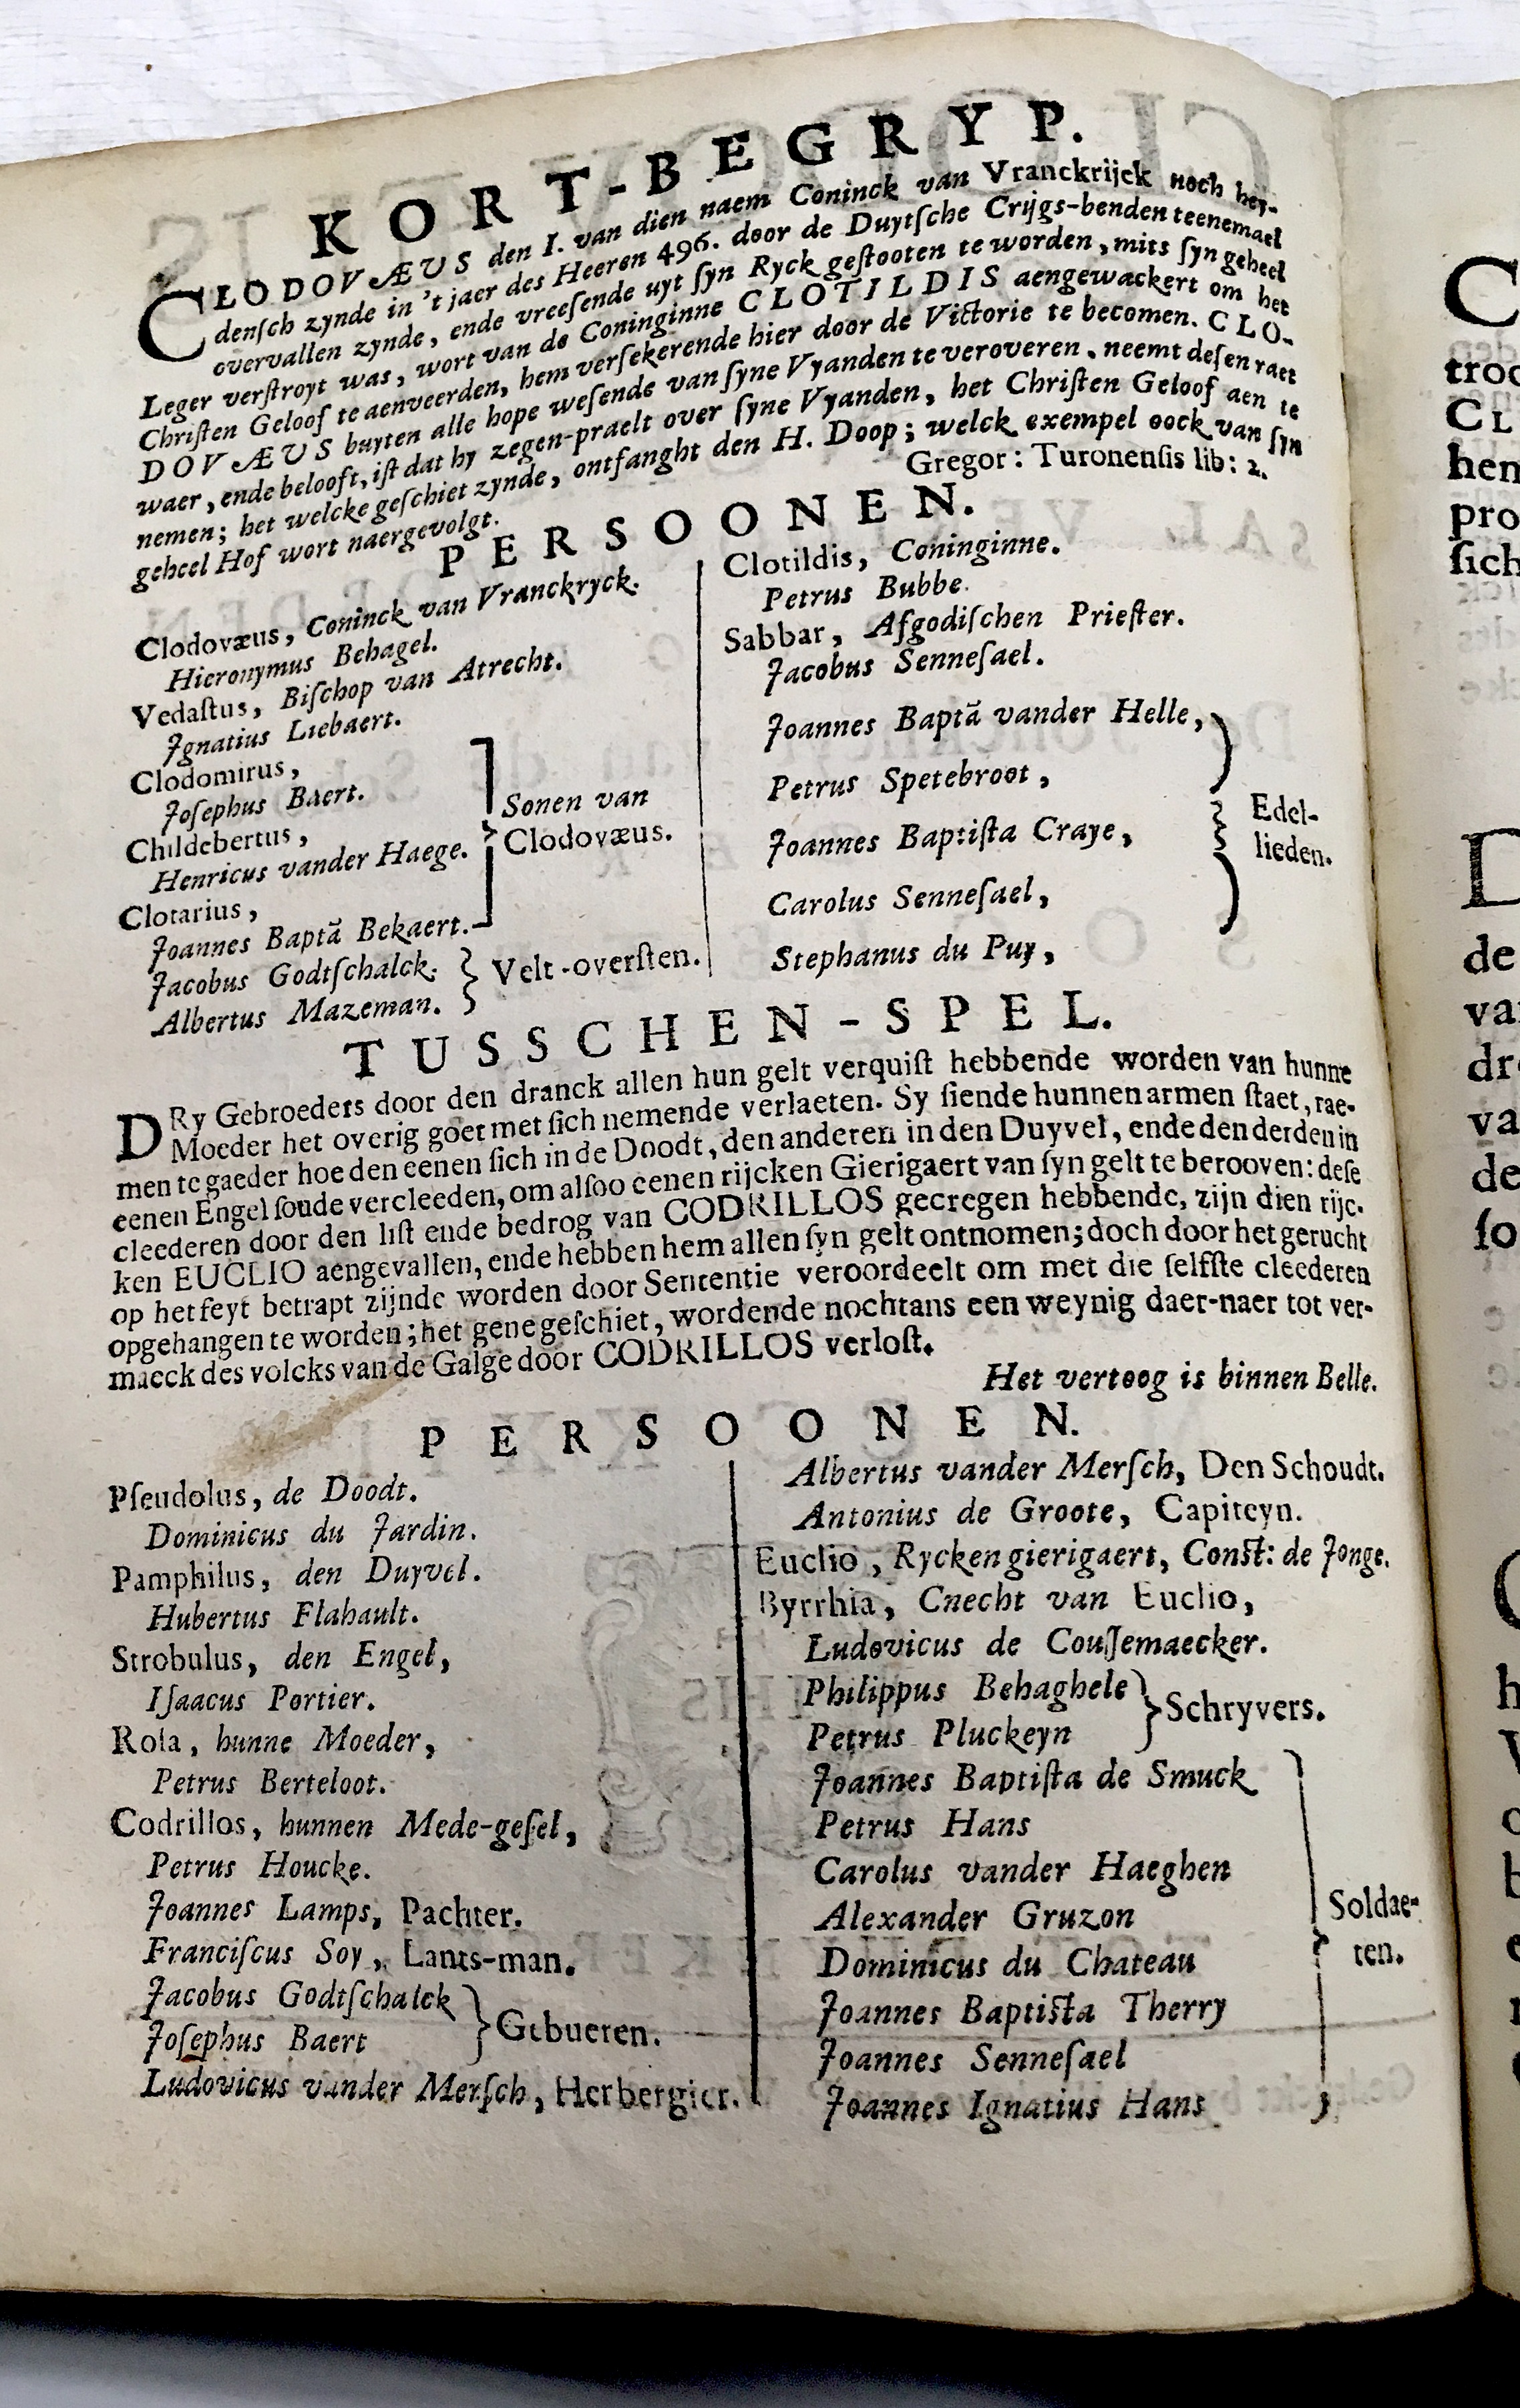 KORT-BEGRYP.
CLODOVÆUS den I. van dien naem Coninck van Vranckrijck noch hey-
denſch zynde in 't jaer des Heeren 496. door de Duytſche Crijgs-benden teenemael
overvallen zynde, ende vreeſende uyt ſyn Ryck geſtooten te worden, mits ſyn geheel
Leger verſtroyt was, wort van de Coninginne CLOTILDIS aengewackert om het
Chriſten Geloof te aenveerden, hem verſekerende hier door de Victorie te becomen. CLO-
DOVÆUS buyten alle hope weſende van ſyne Vyanden te veroveren, neemt deſen raet
waer, ende belooft, iſt dat hy zegen-praelt over ſyne Vyanden, het Chriſten Geloof aen te
nemen; het welcke geſchiet zynde, ontfanght den H. Doop; welck exempel oock van ſyn
geheel Hof wort naergevolgt.
Gregor: Turonenſis lib: 2.
PERSOONEN.
Clodovæus, Coninck van Vranckryck.
Hieronymus Behagel.
Vedaſtus, Biſchop van Atrecht.
Jgnatius Liebaert.
Clodomirus,
Joſephus Baert.
Childebertus,
Henricus vander Haege.
Clotarius,
Joannes Baptã Bekaert.
Sonen van
Clodovæus.
Jacobus Godtſchalck.
Albertus Mazeman.
Velt-overſten.
Clotildis, Coninginne.
Petrus Bubbe.
Sabbar, Afgodiſchen Prieſter.
Jacobus Senneſael.
Joannes Baptã vander Helle,
Petrus Spetebroot,
Joannes Baptiſta Craye,
Carolus Senneſael,
Stephanus du Puy,
Edel-
lieden.
TUSSCHEN-SPEL.
DRy Gebroeders door den dranck allen hun gelt verquiſt hebbende worden van hunne
Moeder het overig goet met ſich nemende verlaeten. Sy ſiende hunnen armen ſtaet, rae-
men te gaeder hoe den eenen ſich in de Doodt, den anderen in den Duyvel, ende den derden in
eenen Engel ſoude vercleeden, om alſoo eenen rijcken Gierigaert van ſyn gelt te berooven: deſe
cleederen door den liſt ende bedrog van CODRILLOS gecregen hebbende, zijn dien rijc-
ken EUCLIO aengevallen, ende hebben hem allen ſyn gelt ontnomen; doch door het gerucht
op het feyt betrapt zijnde worden door Sententie veroordeelt om met die ſelfſte cleederen
opgehangen te worden; het gene geſchiet, wordende nochtans een weynig daer-naer tot ver-
maeck des volcks van de Galge door CODRILLOS verloſt.
Het vertoog is binnen Belle.
PERSOONEN.
Pſeudolus, de Doodt.
Dominicus du Jardin.
Pamphilus, den Duyvel.
Hubertus Flahault.
Strobulus, den Engel,
Iſaacus Portier.
Roſa, hunne Moeder,
Petrus Berteloot.
Codrillos, hunnen Mede-geſel,
Petrus Houcke.
Joannes Lamps, Pachter.
Franciſcus Soy, Lants-man.
Jacobus Godtſchalck
Joſephus Baert
Gebueren.
Ludovicus vander Merſch, Herbergier.
Albertus vander Merſch, Den Schoudt.
Antonius de Groote, Capiteyn.
Euclio, Rycken gierigaert, Conſt: de Jonge.
Byrrhia, Cnecht van Euclio,
Ludovicus de Couſſemaecker.
Philippus Behaghele
Petrus Pluckeyn
Schryvers.
Joannes Baptiſta de Smuck
Petrus Hans
Carolus vander Haeghen
Alexander Gruzon
Dominicus du Chateau
Joannes Baptiſta Therry
Joannes Senneſael
Joannes Ignatius Hans
Soldae-
ten.
troo
CL
hen
pro
ſich
de
dr
va
de
ſo